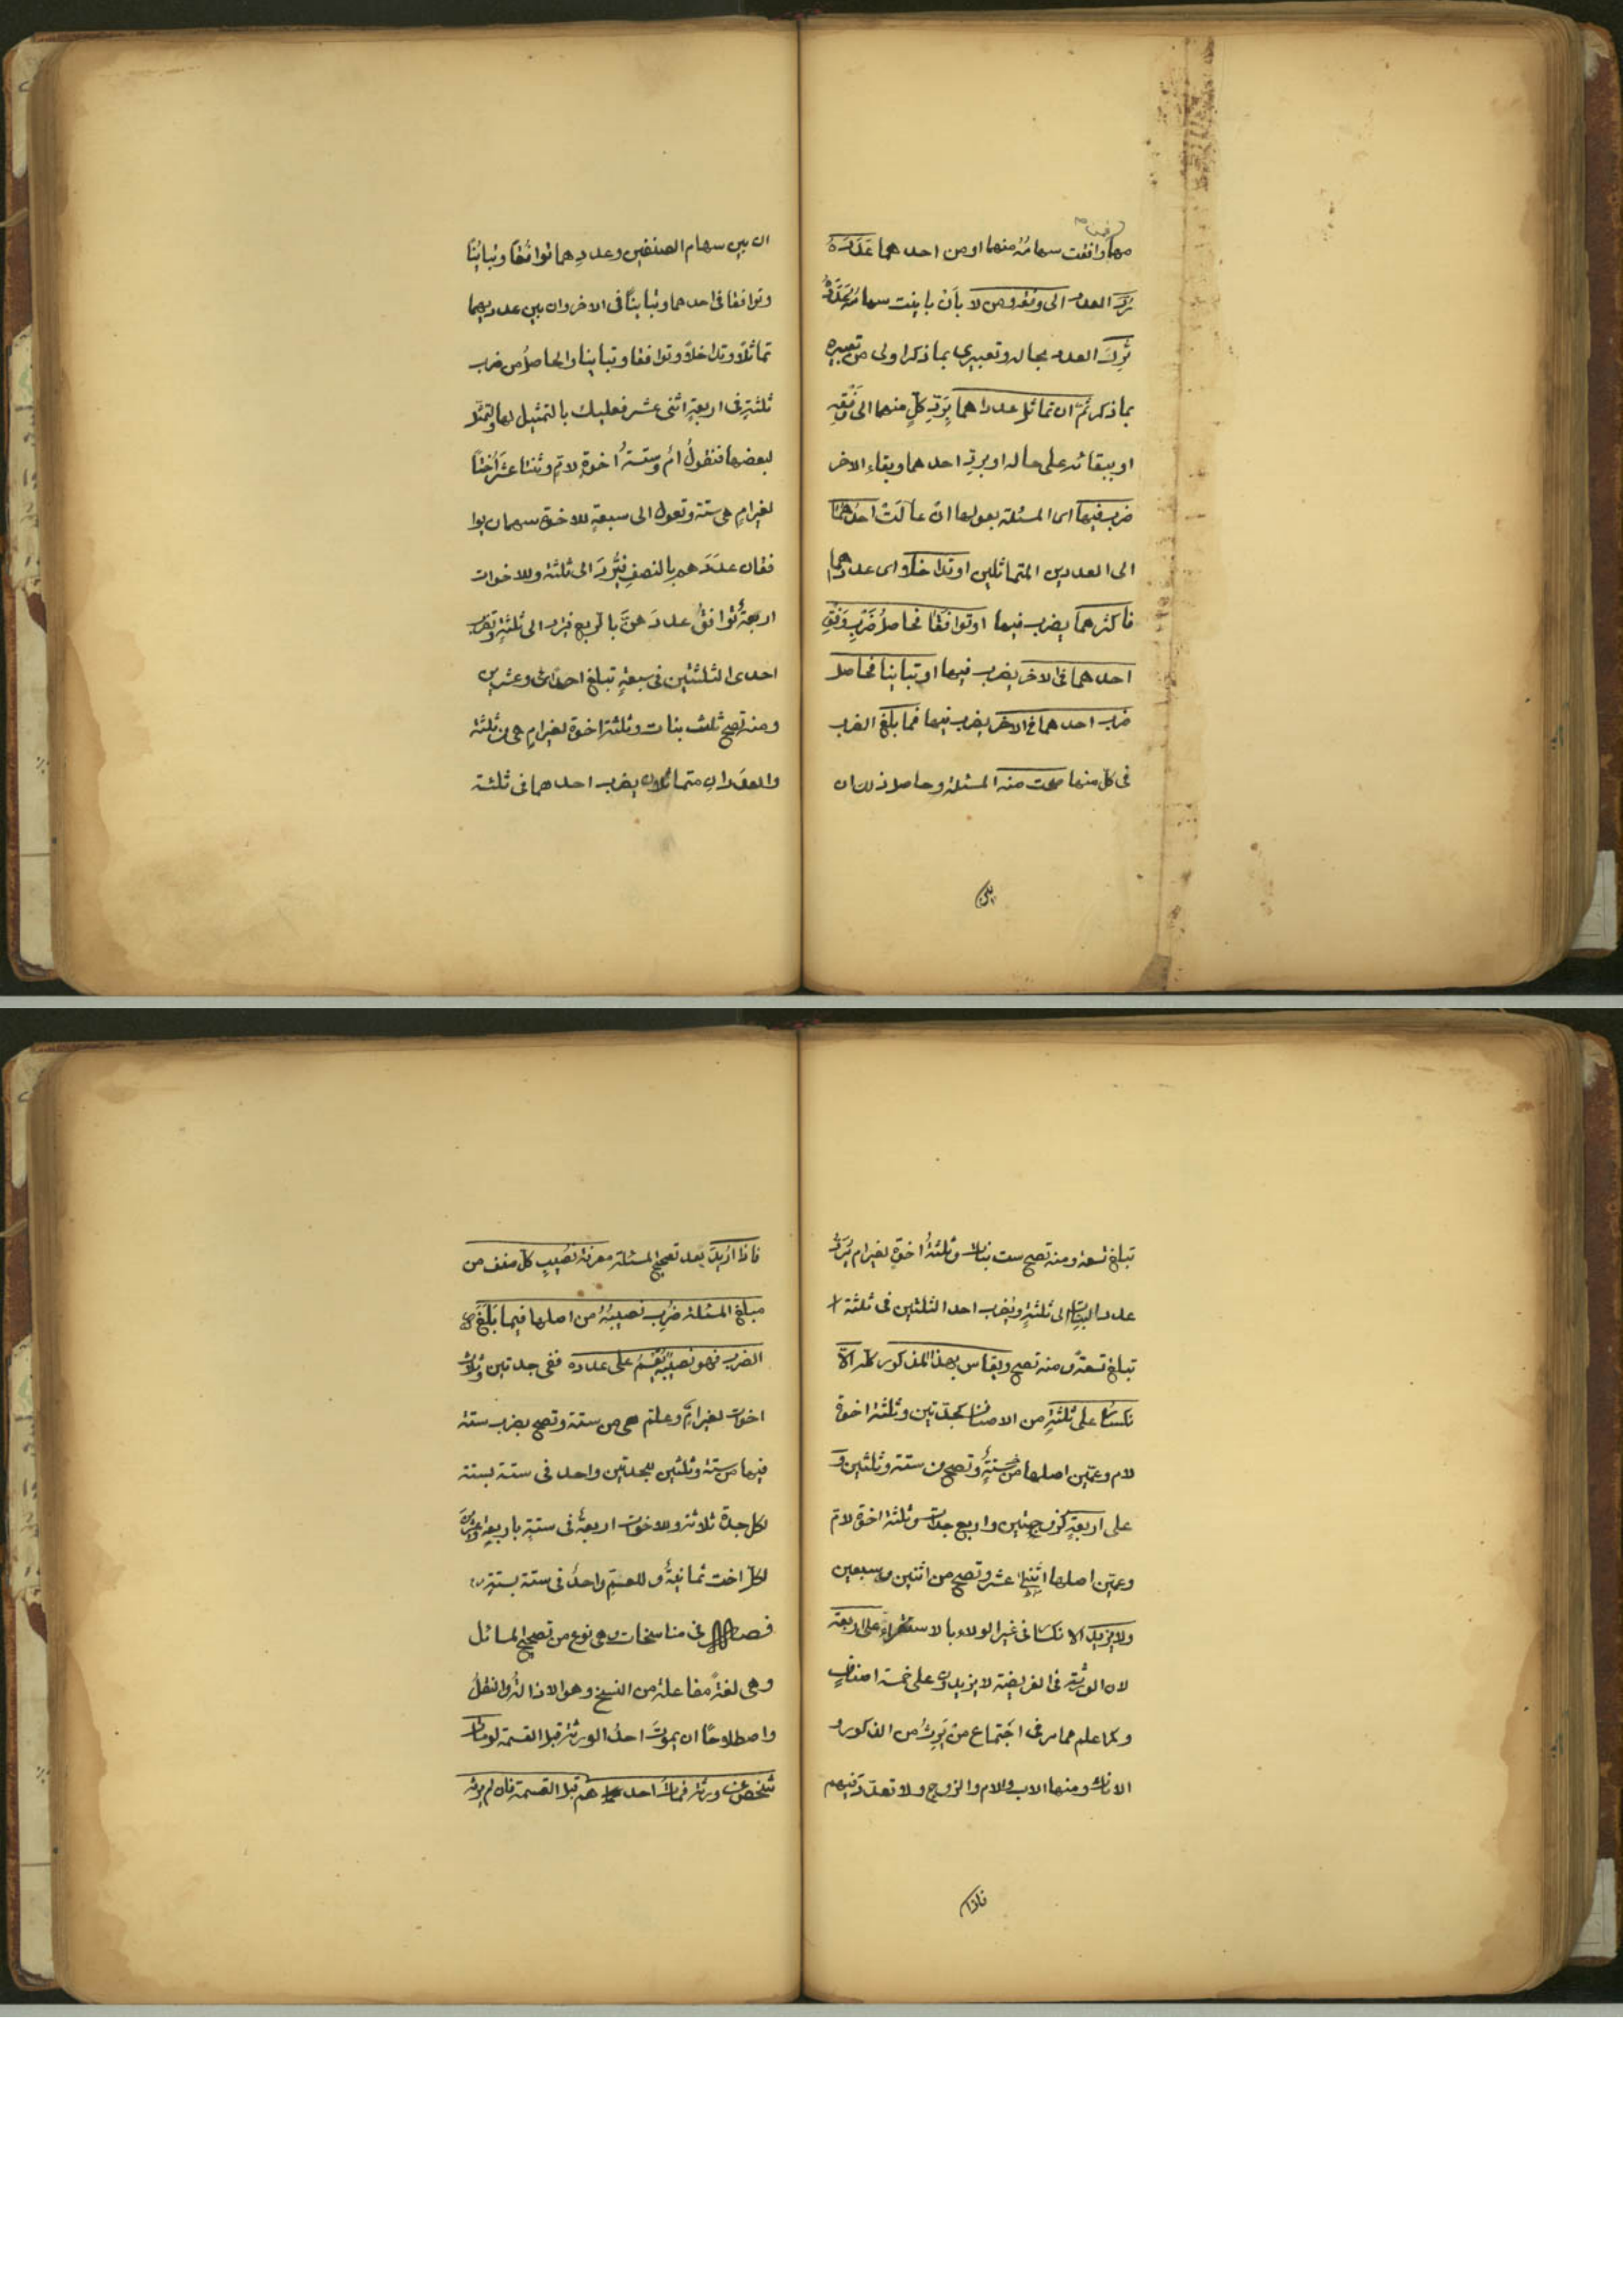 صنف
مهما وافقت سهامُهُ منهما او من احدهما عَدَدَهُ
رُدَّ العدد الى وفقه ومن لا بأن باينت سهامُه عددَه
تُرِكَ العدد بحاله وتعبيري بما ذكر اولى من تعبيره
بما ذكر ثمَّ ان تماثل عدداهما بِرَدِّ كلٍّ منهما الى وَفْقِهِ
او ببقائه على حاله او بردِّ احدهما وبقاء الاخر
ضرب فيها اى المسئلة بعولها ان عالَتْ احدُهما
اى العددين المتماثلين او تداخلا اى عدداهما
فاكثرهما يضرب فيها او توافَقَا فحاصلُ ضَرْبِ وَفْقِ
احدهما فى الاخر يضرب فيها او تباينا فحاصل
ضرب احدهما فى الاخر يضرب فيها فما بلغ الضرب
فى كل منها صحت منه المسئلة وحاصل ذلك ان
بين
ان بين سهام الصنفين وعددِهما توافُقًا وتبايُنًا
وتوافقا فى احدهما وتباينًا فى الاخر وان بين عدديهما
تماثلًا وتداخلًا وتوافقا وتباينا والحاصلُ من ضرب
ثلثةٍ فى اربعةٍ اثنى عشر فعليك بالتمثيل لها ولنمثّل
لبعضها فنقولُ امٌ وستةُ اخوةٍ لامٍّ وثنتا عشَرَ اُختًا
لغير امٍ هى ستة وتعول الى سبعةٍ للاخوة سهمان يوا
فقان عدَدَهم بالنصفِ فيُردَ الى ثلثة وللاخوات
اربعةٌ توافقُ عددَ هنَّ بالربع فيرد الى ثلثةٍ وتضرب
احدى الثلثتين فى سبعةٍ تبلغ احدًى وعشرين
ومنه تصح ثلث بنات وثلثة اخوة لغير امٍ هى من ثلثة
والعددان متماثلان يضرب احدهما فى ثلثة
تبلغ تسعة ومنه تصح ست بنات وثلثةُ اخوةٍ لغير ام يُرَدُّ
عدد البنات الى ثلثةٍ ويضرب احد الثلثين فى ثلثة
تبلغ تسعةً ومنه تصح ويقاس بهذا المذكور كله الا
نكسار على ثلثةٍ من الاصناف كجدّتين وثلثة اخوة
لام وعمّين اصلها من ستةٍ وتصح من ستة وثلثين و
على اربعةٍ كزوجتين واربع جدات وثلثة اخوة لامّ
وعمّين اصلها اثنا عشر وتصح من اثنين وسبعين
ولا يزيد الانكسار فى غير الولاء بالاستقراء على اربعة
لان الورثة فى الفريضة لا يزيدون على خمسة اصنافٍ
وكما علم مما مر فى اجتماع من يَرِثُ من الذكور و
الاناث ومنها الاب والام والزوج ولا تعدّد فيهم
فاذا
فاذا اُرِيدَ بعد تصحيح المسئلة معرفة نصيبِ كل صنف من
مبلغ المسئلة ضُرِبَ نصيبُهُ من اصلها فيما بَلَغَ
الضرب فهو نصيبُه يُقسَمُ على عدده ففى جدتين وثلاث
اخوات لغير امٍّ وعمّ هى من ستة وتصح بضرب ستة
فيها من ستة وثلثين للجدتين واحد فى ستة بستة
لكل جدة ثلاثة وللاخوات اربعةٌ فى ستة باربعةٍ وعشرين
لكلّ اخت ثمانيةٌ وللعمِّ واحدُ فى ستة بستةٍ
فصل فى مناسخات هى نوع من تصحيح المسائل
وهى لغةً مفاعلة من النسخ وهو الازالةُ والنقلُ
واصطلاحًا ان يموتَ احدُ الورثة قبل القسمة لومات
شخص عن ورثة فمات احدهم قبل القسمة فان لم يرثه